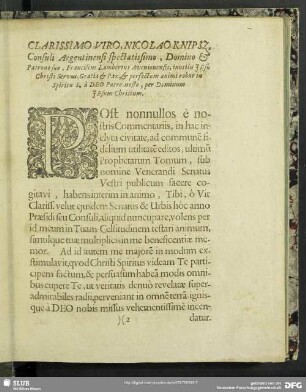 CLARISSIMO VIRO, NICOLAO KNIPSZ,
Consuli Argentinensi spectatissimo, Domino &
Patrono suo, Franciscus Lambertus Avenionensis, inutilis JEsu
Christi Servus, Gratiã & Pacẽ, & perfectum animi robur in
Spiritu S. à DEO Patre nostro, per Dominum
JEsum Christum.
POst nonnullos è no-
stris Commentariis, in hac in-
clyta civitate, ad communẽ fi-
delium utilitatẽ editos, ultimũ
Prophetarum Tomum, sub
nomine Venerandi Senatus
Vestri publicum facere co-
gitavi, habens interim in animo, Tibi, ô Vir
Clariss. velut quidem Senatus & Urbis hoc anno
Præsidi seu Consuli, aliquid nuncupare, volens per
id meam in Tuam Celsitudinem testari animum,
simulque tuæ multiplicis in me beneficentiæ me-
mor. Ad id autem me majorẽ in modum ex-
stimulavit, quod Christi Spiritus videam Te parti-
cipem factum, & persuasum habeã modis omni-
bus cupere Te, ut veritatis denuò revelatæ super-
admirabiles radii, perveniant in omnẽ terrã, ignis-
que à DEO nobis missus vehementissimè incen-
)( 2 datur.
SLUB
DFG